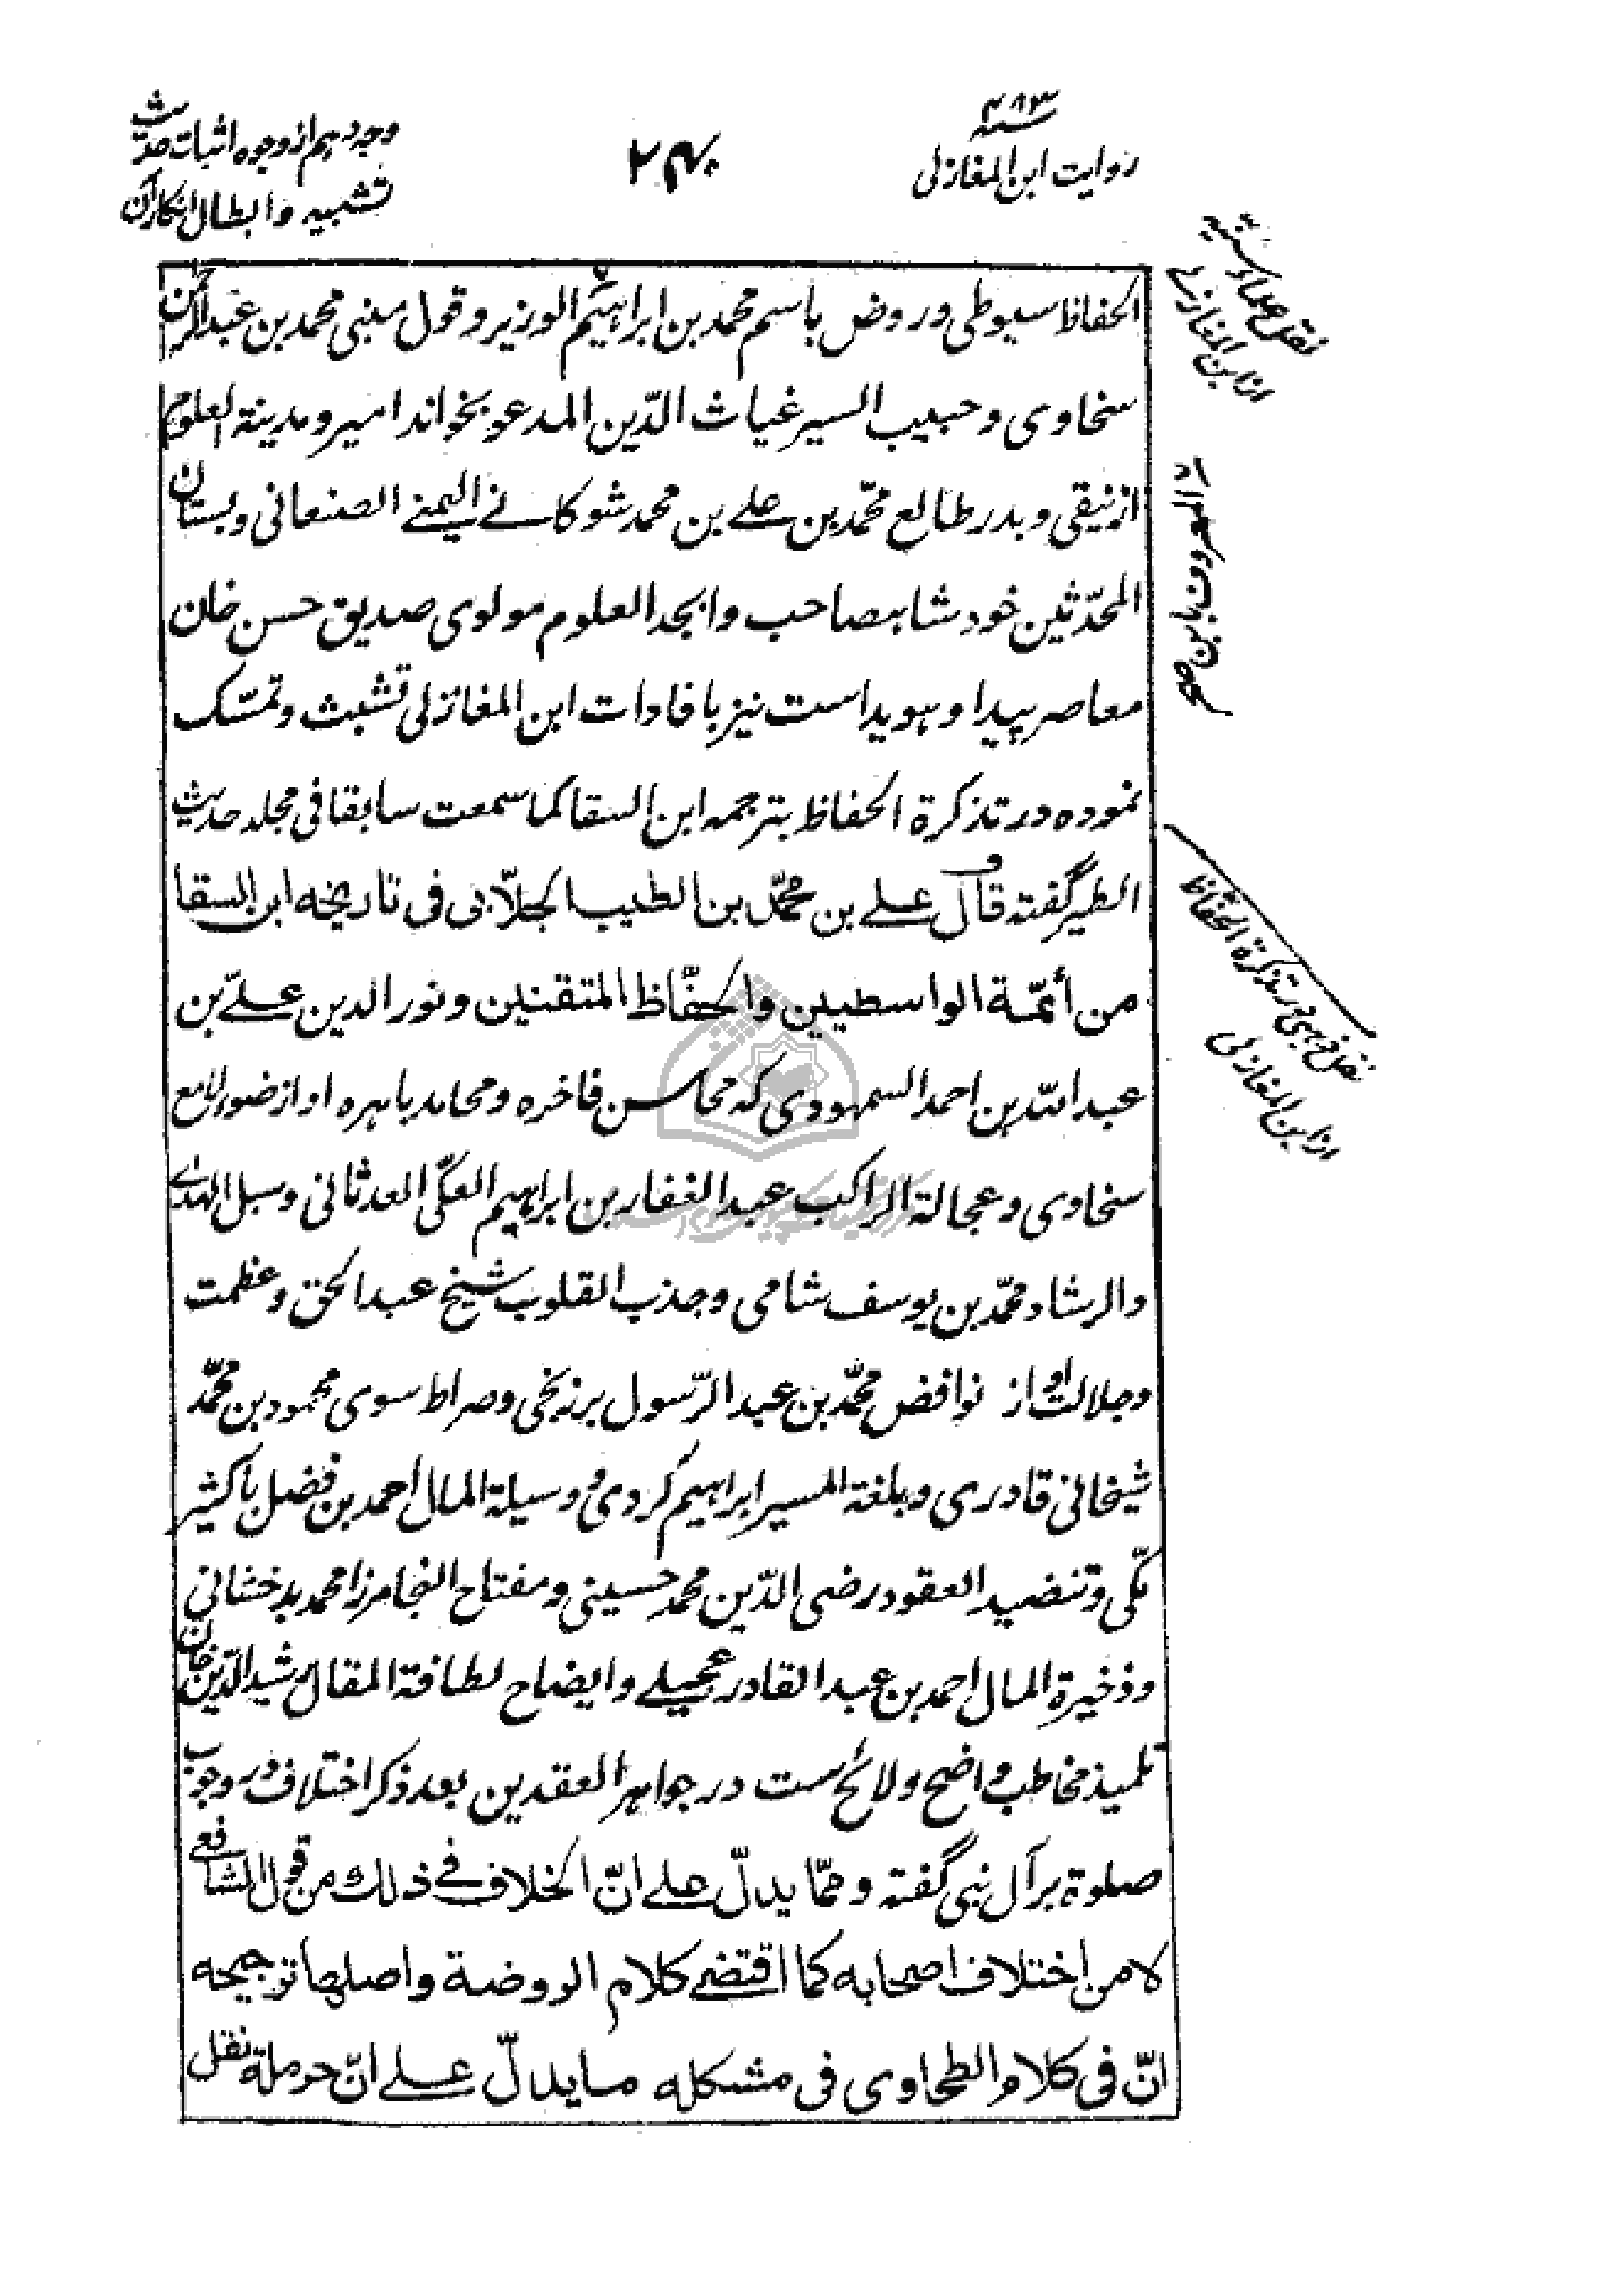 سنه ۴۸۳
روایت ابن المغازلی
۲۴۰
وجه دهم از وجوه اثبات حدیث
تشبیه و ابطال انکار آن
نقل علماء سنیه
از ابن المغازلے
الحفاظ سیوطی و روض باسم محمد بن ابراهیم الوزیر و قول منبی محمد بن عبدالرحمن
سخاوی و حبیب السیر غیاث الدّین المدعو بخواند امیر و مدینة العلوم
ازنیقی و بدر طالع محمّد بن علے بن محمد شوکانے الیمنے الصنعانی و بستان
المحدّثین خود شاهصاحب و ابجد العلوم مولوی صدیق حسن خان
معاصر پیدا و هویداست نیز بافادات ابن المغازلی تشبث و تمسّک
نموده در تذکرة الحفاظ بترجمه ابن السقا کما سمعت سابقا فی مجلد حدیث
الطیر گفته و قال علے بن محمّد بن الطیب الجلّابی فی تاریخه ابن السقا
من أئمّة الواسطیین والحفّاظ المتقنین و نور الدین علےّ بن
عبد الله بن احمد السمهودی که محاسن فاخره و محامد باهره او از ضوء لامع
سخاوی و عجالة الراکب عبد الغفار بن ابراهیم العکّی العدثانی و سبل الهدے
والرشاد محمّد بن یوسف شامی و جذب القلوب شیخ عبد الحق و عظمت
و جلالت او از نواقض محمّد بن عبد الرّسول برزنجی و صراط سوی محمود بن محمّد
شیخانی قادری و بلغة المسیر ابراهیم کردی و وسیلة المال احمد بن فضل باکثیر
مکّی و تنضید العقود رضی الدّین محمد حسینی و مفتاح النجا مرزا محمد بدخشانی
و ذخیرة المال احمد بن عبد القادر عجیلے و ایضاح لطافة المقال رشید الدّین خان
تلمیذ مخاطب واضح و لائح ست در جواهر العقدین بعد ذکر اختلاف در وجوب
صلوة بر آل نبی گفته و ممّا یدلّ علے انّ الخلاف فے ذلك من قول الشافعے
لا من اختلاف اصحابه کما اقتضے کلام الروضة و اصلها ترجیحه
انّ فی کلام الطحاوی فی مشکله ما یدلّ علے انّ حرملة نقل
نقل ذهبی در تذکرة الحفاظ
از ابن المغازلی